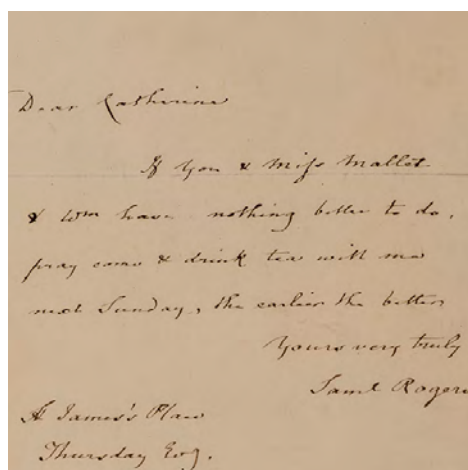 Dear Catherine
If you & Miss Mallet
& Wm have nothing better to do,
pray come & drink tea with me
next Sunday, the earlier the better
Yours very truly
Saml Rogers
St James's Place
Thursday Evg.